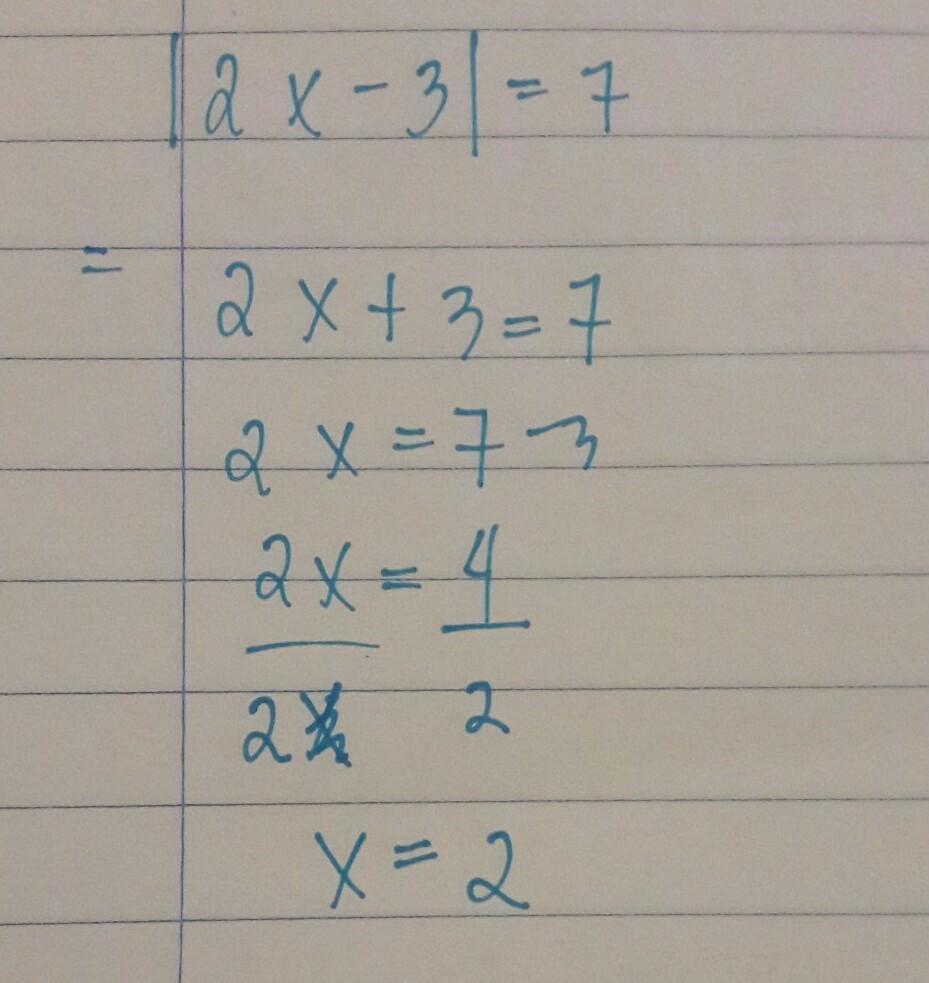 |2x-3| = 7
= 2x + 3 = 7
2x = 7-3
2x = 4
2 2
x = 2